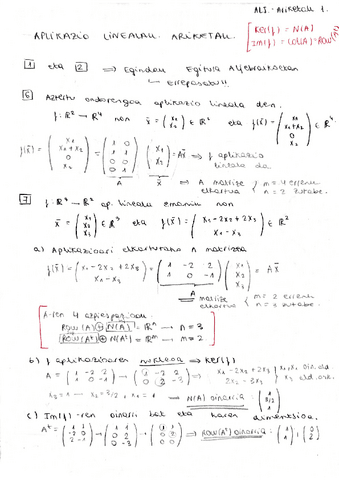 ALJ. Ariketak 1.
APLIKAZIO LINEALAK. ARIKETAK.
Ker(f) = N(A)
Im(f) = Col(A) = Row(Aᵗ)
1 eta 2 ⇒ Egindak Egitura Aljebraikoetan
↳ Errepasatu!!
6 Aztertu ondorengoa aplikazio lineala den.
f: ℝ² → ℝ⁴ non x̄ = (x₁ x₂) ∈ ℝ² eta f(x̄) = (x₁ x₁+x₂ 0 x₂) ∈ ℝ⁴
f(x̄) = (x₁ x₁+x₂ 0 x₂) = (1 0 1 1 0 0 0 1) (x₁ x₂) = Ax̄ ⇒ f aplikazio lineala da
A x̄ ⇒ A matrize elkartua { m = 4 errenk. n = 2 zutabe.
7 f: ℝ³ → ℝ² ap. lineala emanik non
x̄ = (x₁ x₂ x₃) ∈ ℝ³ eta f(x̄) = (x₁ - 2x₂ + 2x₃ x₁ - x₃) ∈ ℝ²
a) Aplikazioari elkarturako A matrizea
f(x̄) = (x₁ - 2x₂ + 2x₃ x₁ - x₃) = (1 -2 2 1 0 -1) (x₁ x₂ x₃) = A x̄
A matrize elkartua { m = 2 errenk. n = 3 zutabe.
A-ren 4 azpiespazioak:
ROW(A) ⊕ N(A) = ℝⁿ → n = 3
ROW(Aᵗ) ⊕ N(Aᵗ) = ℝᵐ → m = 2
b) f aplikazioaren nukleoa ⇒ Ker(f)
A = (1 -2 2 1 0 -1) → (1 -2 2 0 2 -3) ⇒ x₁ - 2x₂ + 2x₃ 2x₂ - 3x₃
x₃ = 1 → x₂ = 3/2, x₁ = 1 → N(A) oinarria: (1 3/2 1)
c) Im(f)-ren oinarri bat eta haren dimentsioa.
Aᵗ = (1 1 -2 0 2 -1) → (1 1 0 2 0 -3) → (1 1 0 2 0 0) ⇒ ROW(Aᵗ) oinarria: (1 1), (0 2)